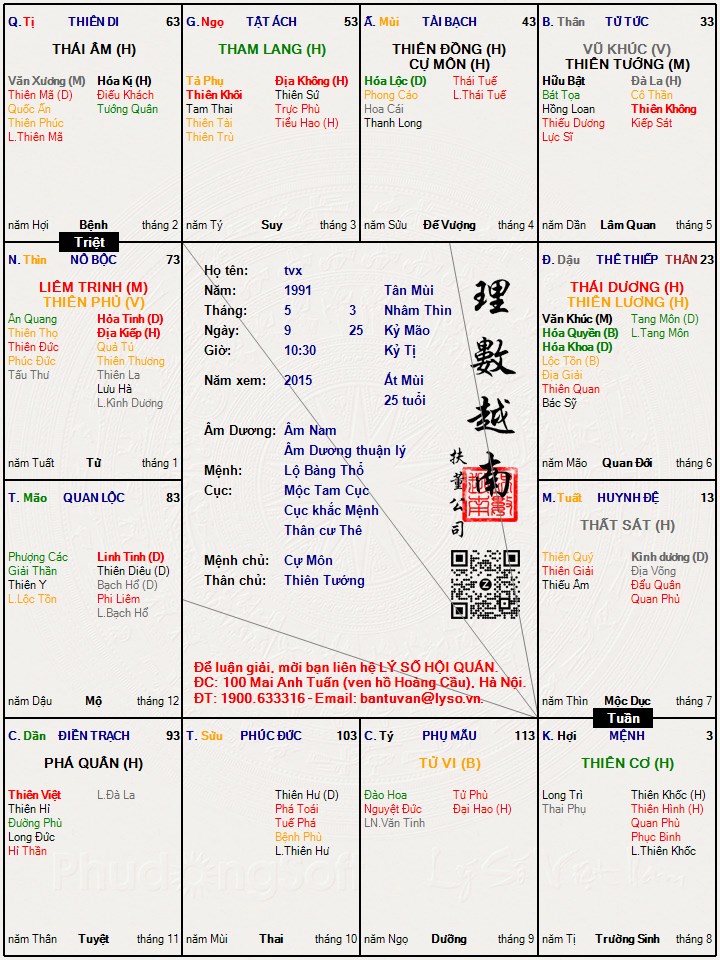 Q. Tị THIÊN DI 63
THÁI ÂM (H)
Văn Xương (M) Hóa Kị (H)
Thiên Mã (D) Điếu Khách
Quốc Ấn Tướng Quân
Thiên Phúc
L.Thiên Mã
năm Hợi Bệnh tháng 2
G. Ngọ TẬT ÁCH 53
THAM LANG (H)
Tả Phụ Địa Không (H)
Thiên Khôi Thiên Sứ
Tam Thai Trực Phù
Thiên Tài Tiểu Hao (H)
Thiên Trù
năm Tý Suy tháng 3
Ấ. Mùi TÀI BẠCH 43
THIÊN ĐỒNG (H)
CỰ MÔN (H)
Hóa Lộc (D) Thái Tuế
Phong Cáo L.Thái Tuế
Hoa Cái
Thanh Long
năm Sửu Đế Vượng tháng 4
B. Thân TỬ TỨC 33
VŨ KHÚC (V)
THIÊN TƯỚNG (M)
Hữu Bật Đà La (H)
Bát Tọa Cô Thần
Hồng Loan Thiên Không
Thiếu Dương Kiếp Sát
Lực Sĩ
năm Dần Lâm Quan tháng 5
Triệt
N. Thìn NÔ BỘC 73
LIÊM TRINH (M)
THIÊN PHỦ (V)
Ân Quang Hỏa Tinh (D)
Thiên Thọ Địa Kiếp (H)
Thiên Đức Quả Tú
Phúc Đức Thiên Thương
Tấu Thư Thiên La
Lưu Hà
L.Kình Dương
năm Tuất Tử tháng 1
Họ tên: tvx
Năm: 1991 Tân Mùi
Tháng: 5 3 Nhâm Thìn
Ngày: 9 25 Kỷ Mão
Giờ: 10:30 Kỷ Tị
Năm xem: 2015 Ất Mùi
25 tuổi
Âm Dương: Âm Nam
Âm Dương thuận lý
Mệnh: Lộ Bàng Thổ
Cục: Mộc Tam Cục
Cục khắc Mệnh
Thân cư Thê
Mệnh chủ: Cự Môn
Thân chủ: Thiên Tướng
理數越南
扶董公司
Z
Để luận giải, mời bạn liên hệ LÝ SỐ HỘI QUÁN.
ĐC: 100 Mai Anh Tuấn (ven hồ Hoàng Cầu), Hà Nội.
ĐT: 1900.633316 - Email: bantuvan@lyso.vn.
Đ. Dậu THÊ THIẾP THÂN 23
THÁI DƯƠNG (H)
THIÊN LƯƠNG (H)
Văn Khúc (M) Tang Môn (D)
Hóa Quyền (B) L.Tang Môn
Hóa Khoa (D)
Lộc Tồn (B)
Địa Giải
Thiên Quan
Bác Sỹ
năm Mão Quan Đới tháng 6
T. Mão QUAN LỘC 83
Phượng Các Linh Tinh (D)
Giải Thần Thiên Diêu (D)
Thiên Y Bạch Hổ (D)
L.Lộc Tồn Phi Liêm
L.Bạch Hổ
năm Dậu Mộ tháng 12
M. Tuất HUYNH ĐỆ 13
THẤT SÁT (H)
Thiên Quý Kình dương (D)
Thiên Giải Địa Võng
Thiếu Âm Đẩu Quân
Quan Phủ
năm Thìn Mộc Dục tháng 7
Tuần
C. Dần ĐIỀN TRẠCH 93
PHÁ QUÂN (H)
Thiên Việt L.Đà La
Thiên Hỉ
Đường Phù
Long Đức
Hỉ Thần
năm Thân Tuyệt tháng 11
T. Sửu PHÚC ĐỨC 103
Thiên Hư (D)
Phá Toái
Tuế Phá
Bệnh Phù
L.Thiên Hư
năm Mùi Thai tháng 10
C. Tý PHỤ MẪU 113
TỬ VI (B)
Đào Hoa Tử Phù
Nguyệt Đức Đại Hao (H)
LN.Văn Tinh
năm Ngọ Dưỡng tháng 9
K. Hợi MỆNH 3
THIÊN CƠ (H)
Long Trì Thiên Khốc (H)
Thai Phụ Thiên Hình (H)
Quan Phù
Phục Binh
L.Thiên Khốc
năm Tị Trường Sinh tháng 8